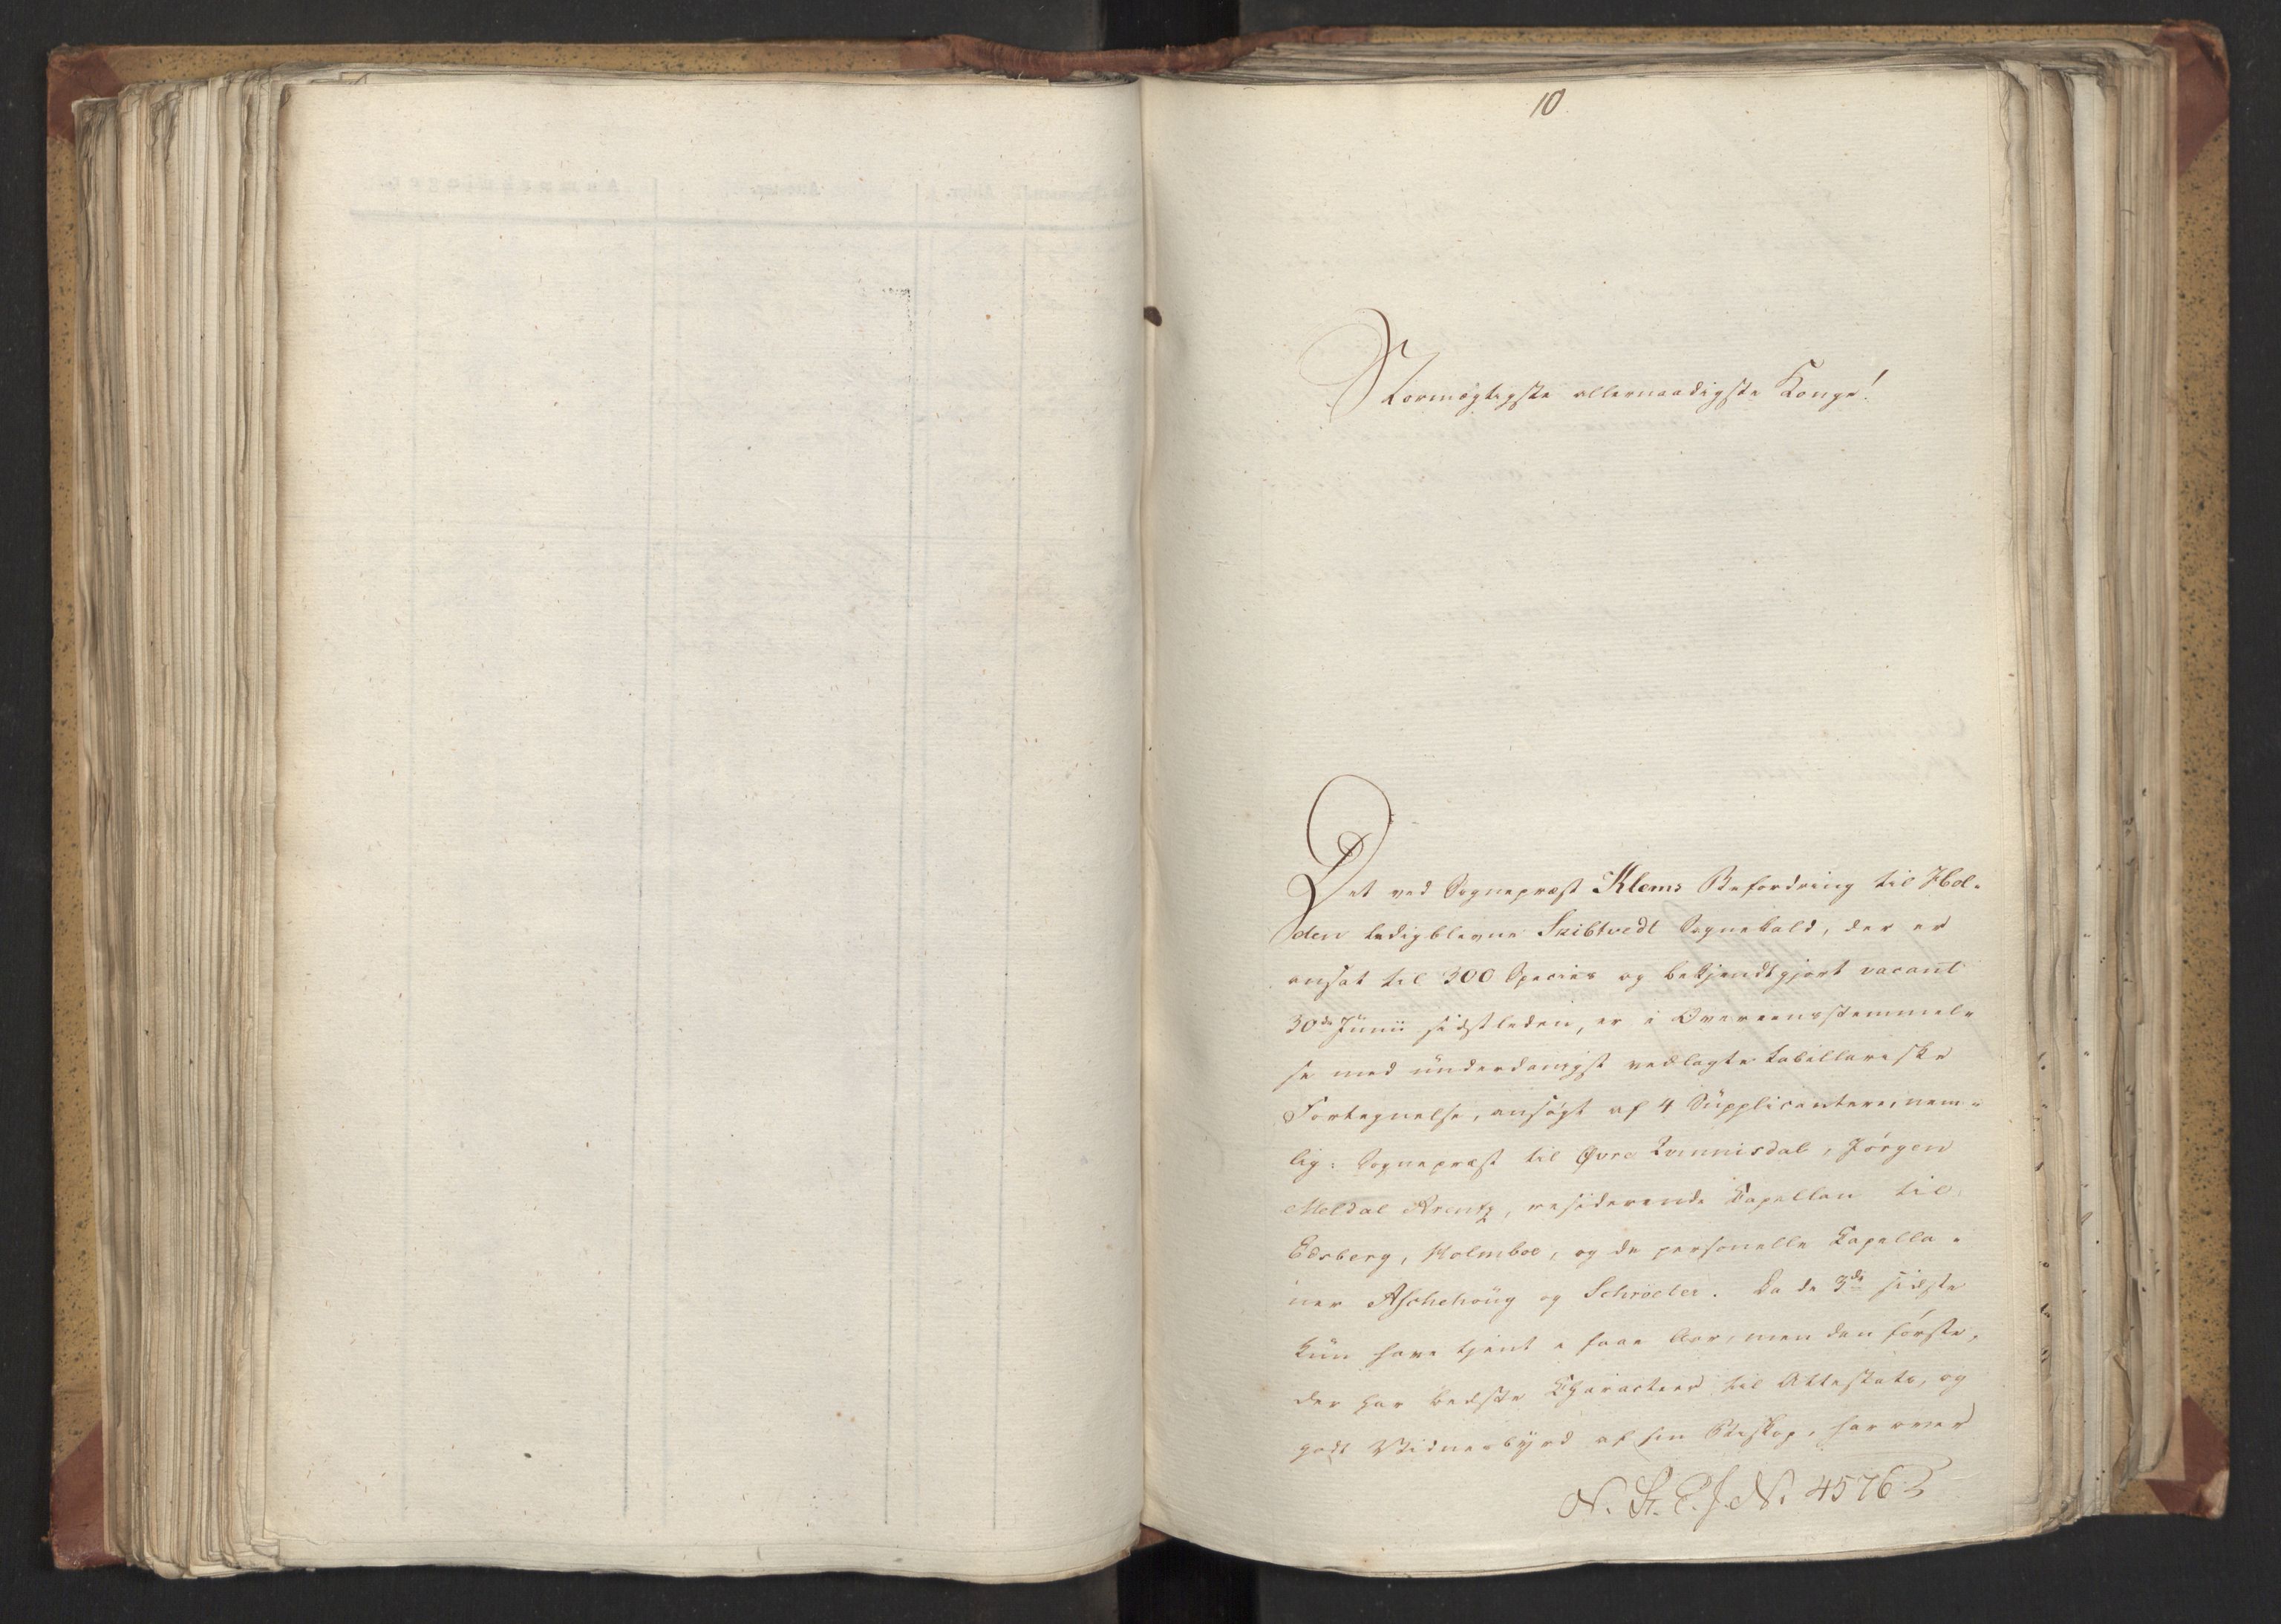 10
Stormægtigste allernaadigste Konge!
Det ved Sognepræst Klems Befordring til Hol-
den ledigblevne Skibtvedt Sognekald, der er
ansat til 300 Species og bekjendtgjort vacant
30de Junii sidstleden, er i Overeensstemmel-
se med underdanigst vedlagte tabellariske
Fortegnelse, ansøgt af 4 Supplicantere, nem-
lig: Sognepræst til Øvre Qvinnisdal, Jørgen
Meldal Arentz, residerende Kapellan til
Edsberg, Holmboe, og de personelle Kapella-
ner Aschehoug og Schrøeter. Da de 3de sidste
kun have tjent i faae Aar, men den første,
der har bedste Characteer til Attestats, og
godt Vidnesbyrd af sin Biskop, har over
N. St. E. J. No. 4576